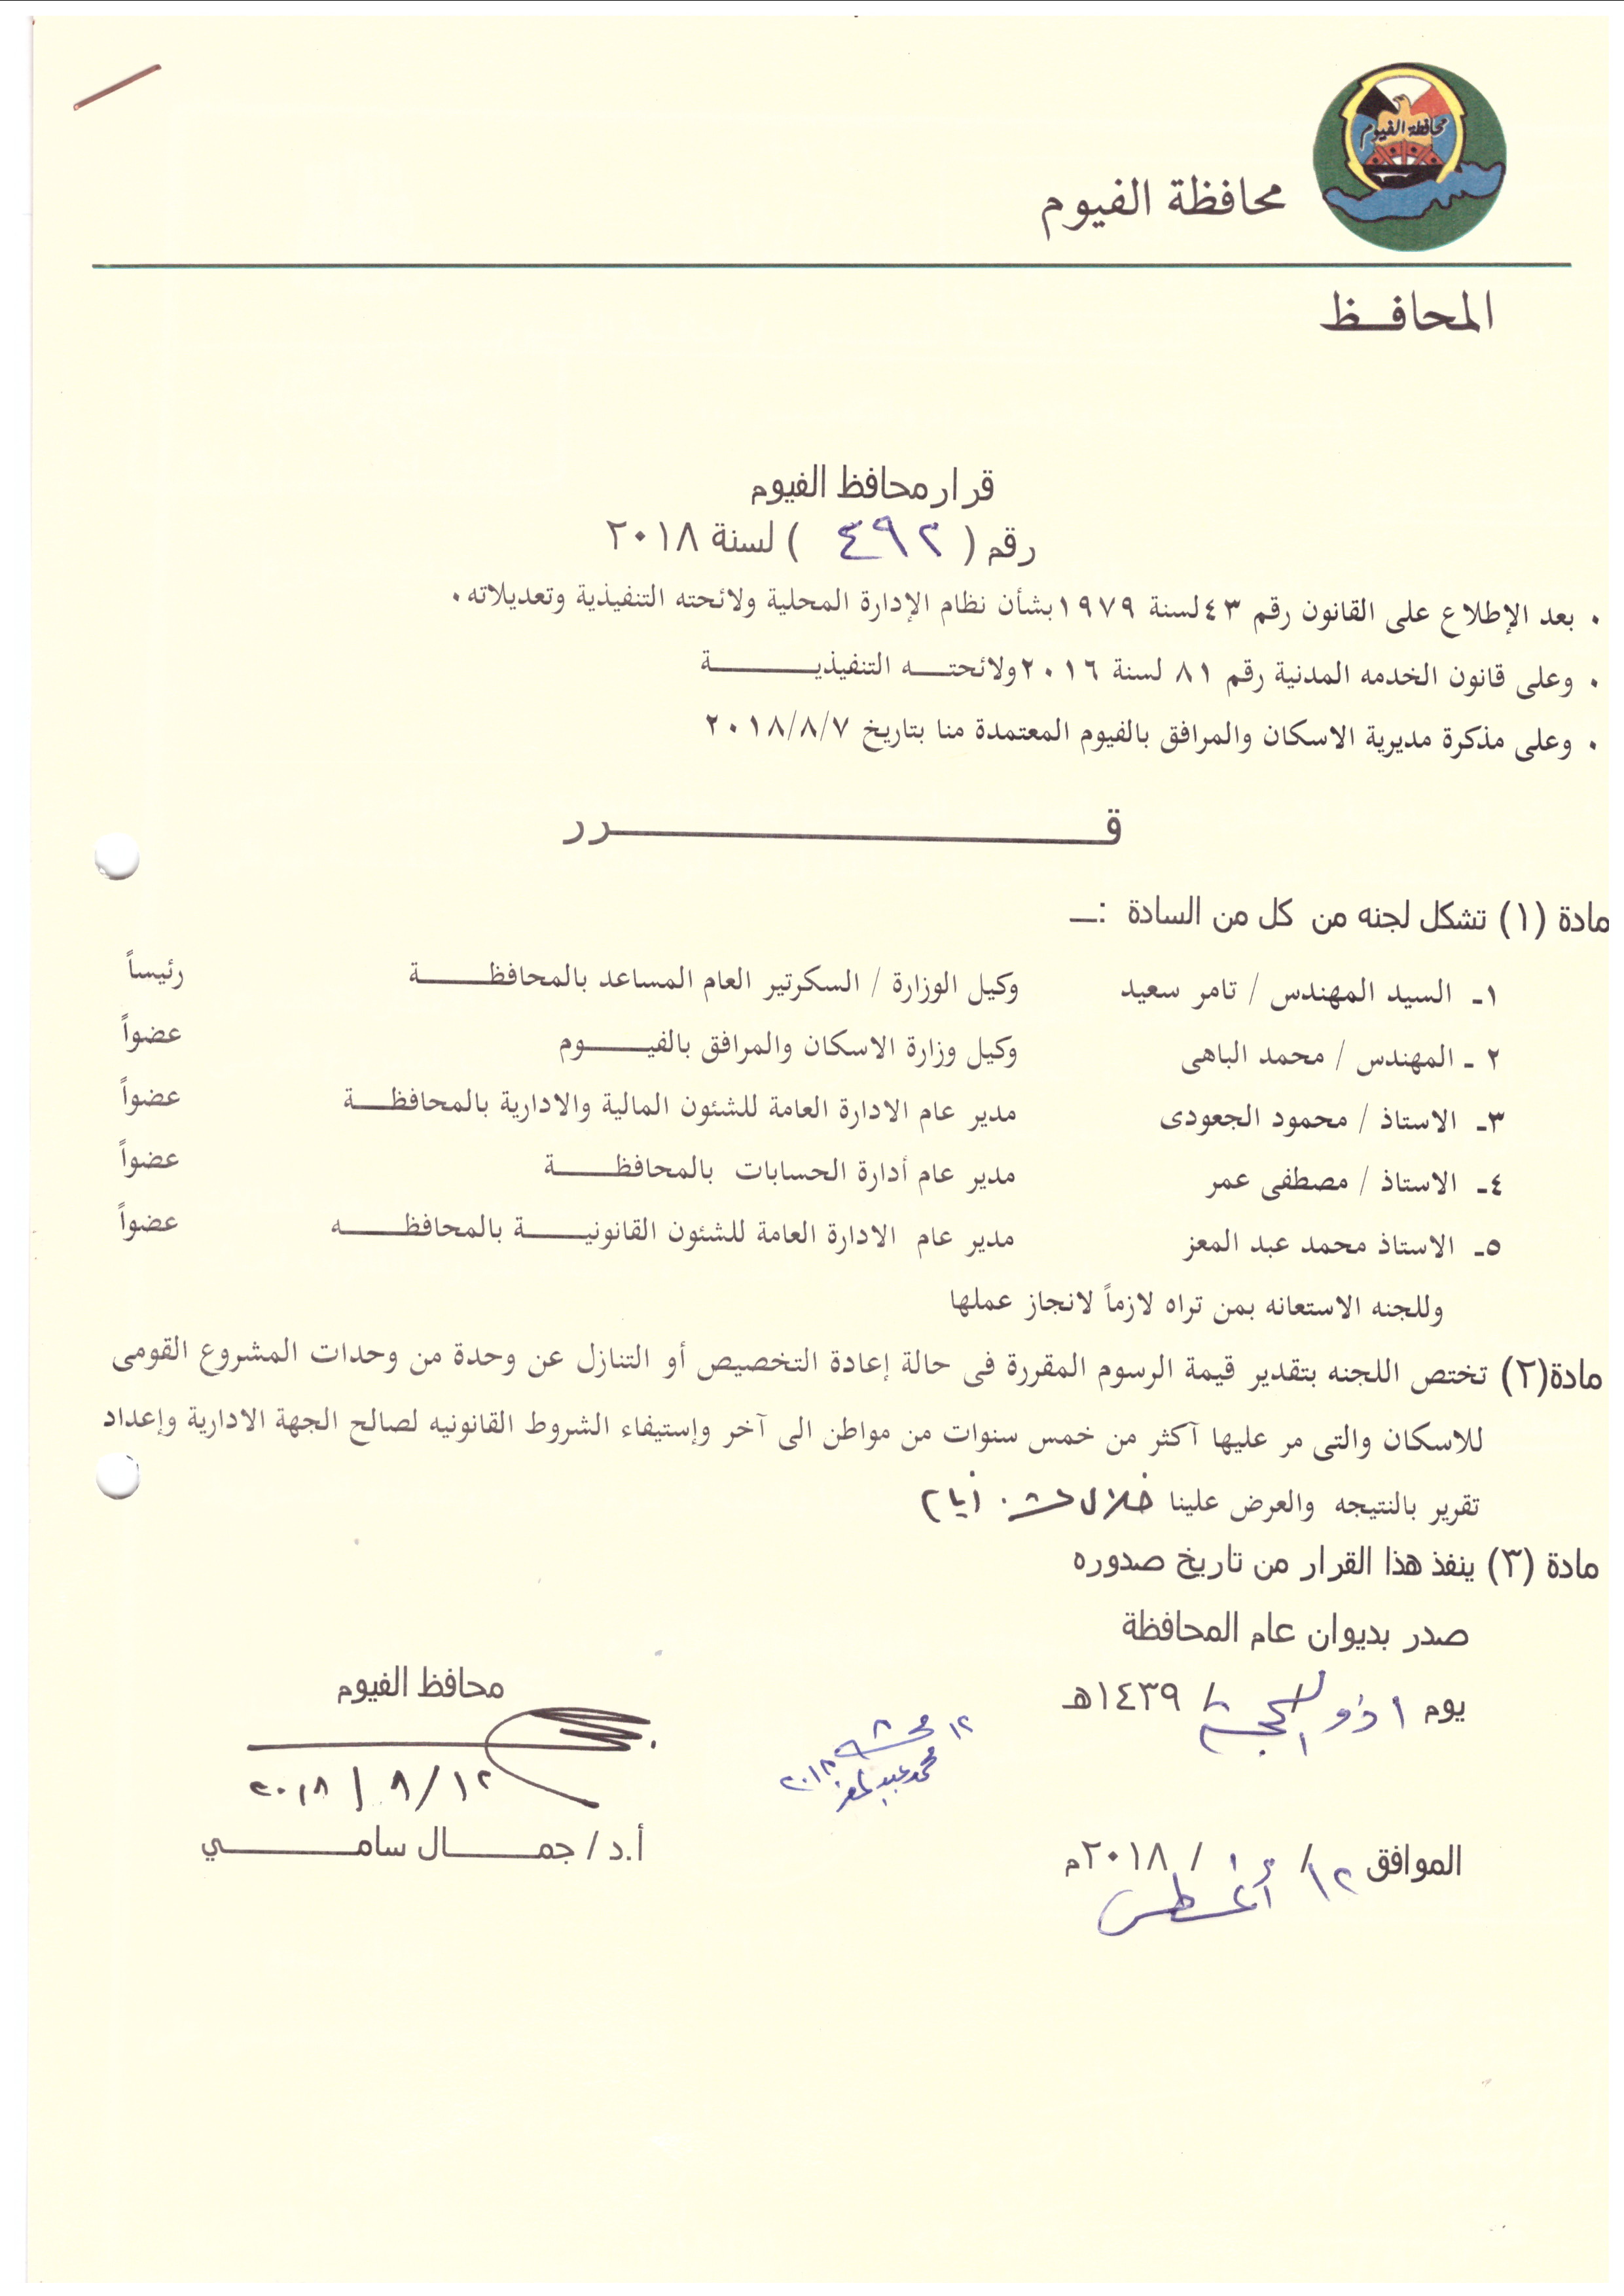 محافظة الفيوم
محافظة الفيوم
المحافــظ
قرار محافظ الفيوم
رقم ( ٤٩٢ ) لسنة ٢٠١٨
• بعد الإطلاع على القانون رقم ٤٣ لسنة ١٩٧٩ بشأن نظام الإدارة المحلية ولائحته التنفيذية وتعديلاته .
• وعلى قانون الخدمه المدنية رقم ٨١ لسنة ٢٠١٦ ولائحتــه التنفيذيــــــة
• وعلى مذكرة مديرية الاسكان والمرافق بالفيوم المعتمدة منا بتاريخ ٢٠١٨/٨/٧
قــــــــــــــــرر
مادة (١) تشكل لجنه من كل من السادة :ـ
١ـ السيد المهندس / تامر سعيد وكيل الوزارة / السكرتير العام المساعد بالمحافظــــة رئيساً
٢ ـ المهندس / محمد الباهى وكيل وزارة الاسكان والمرافق بالفيــــوم عضواً
٣ـ الاستاذ / محمود الجعودى مدير عام الادارة العامة للشئون المالية والادارية بالمحافظــــة عضواً
٤ـ الاستاذ / مصطفى عمر مدير عام أدارة الحسابات بالمحافظــــة عضواً
٥ـ الاستاذ محمد عبد المعز مدير عام الادارة العامة للشئون القانونيــــة بالمحافظــــه عضواً
وللجنه الاستعانه بمن تراه لازماً لانجاز عملها
مادة(٢) تختص اللجنه بتقدير قيمة الرسوم المقررة فى حالة إعادة التخصيص أو التنازل عن وحدة من وحدات المشروع القومى
للاسكان والتى مر عليها آكثر من خمس سنوات من مواطن الى آخر وإستيفاء الشروط القانونيه لصالح الجهة الادارية وإعداد
تقرير بالنتيجه والعرض علينا خلال
مادة (٣) ينفذ هذا القرار من تاريخ صدوره
صدر بديوان عام المحافظة
محافظ الفيوم
يوم ١ ذو الحجة / ١٤٣٩هـ
١٢
محمد عبد المعز
٢٠١٨
١٢/٨/٢٠١٨
أ.د / جمــــال سامــــي
الموافق ١٢/ أغسطس / ٢٠١٨م